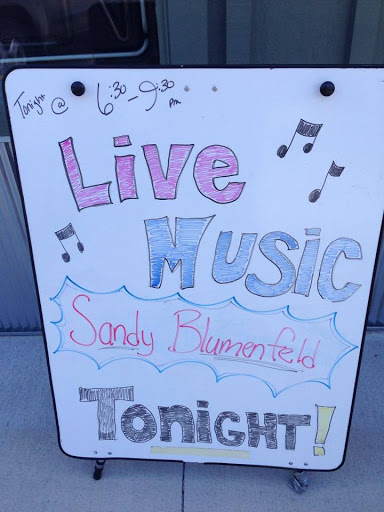 Tonight @ 6:30 - 9:30 pm
Live
Music
Sandy Blumenfeld
Tonight!